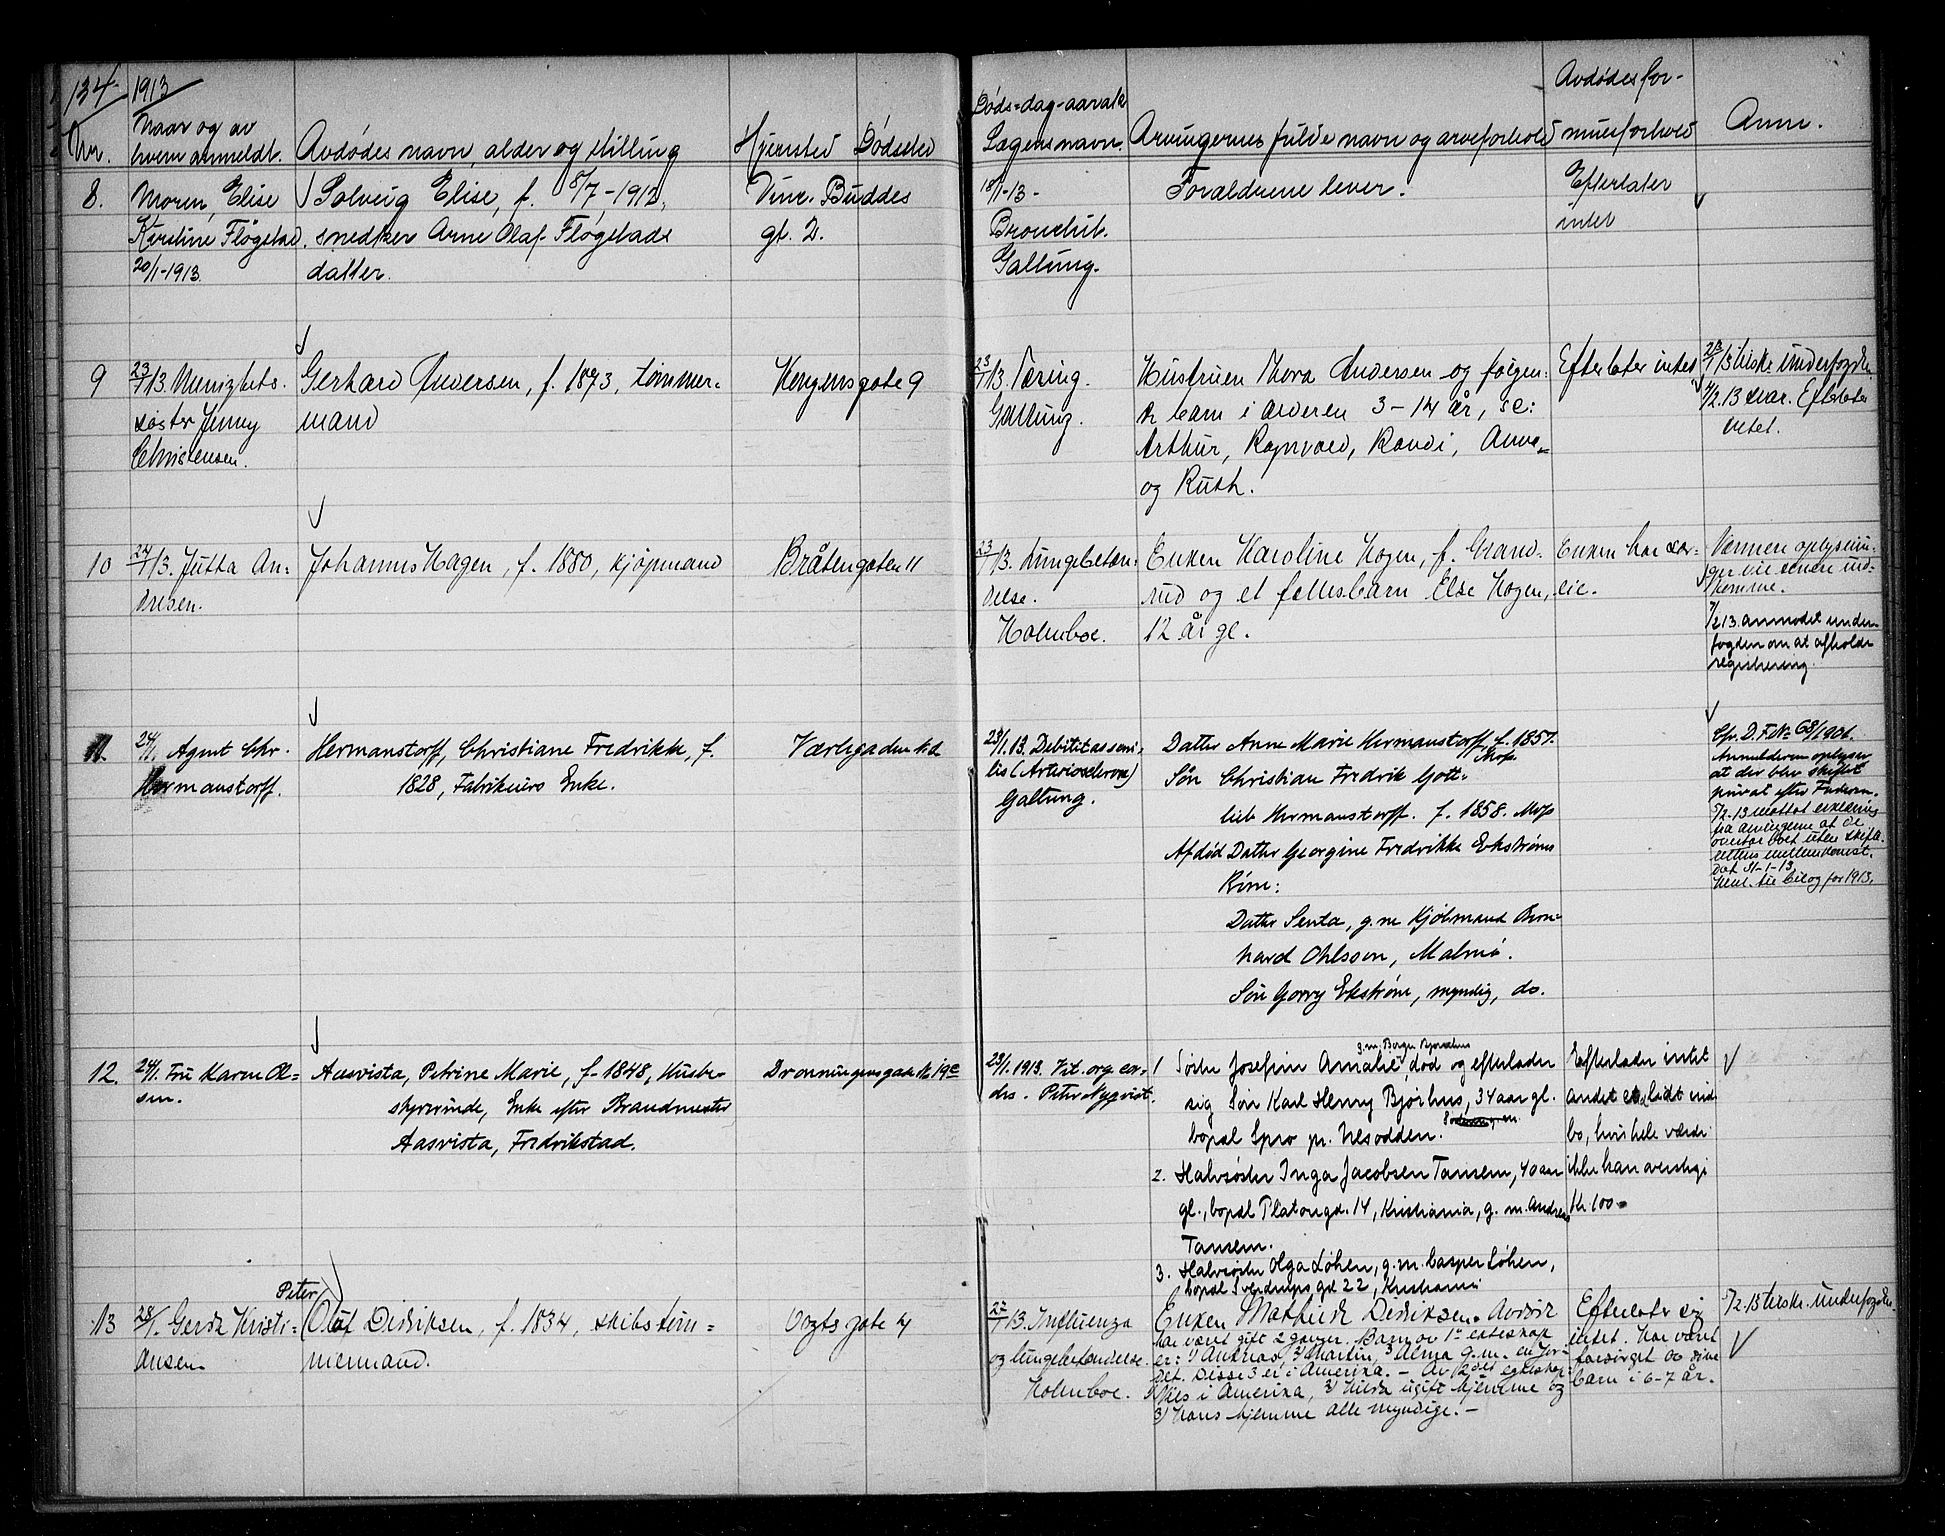 134
1913
Nr.
Naar og av
hvem anmeldt.
Avdødes navn, alder og stilling
Hjemsted
Dødssted
Døds-dag-aarsak
Lægens navn.
Arvingernes fulde navn og arveforhold
Avdødes for-
muesforhold
Anm.
8.
Moren, Elise
Kirstine Fløgstad
20/1-1913.
Solveig Elise, f. 8/7-1912,
snedker Arne Olaf Fløgstads
datter.
Vinc. Buddes
gt. 2.
18/1-13-
Bronchit.
Galtung.
Forældrene lever.
Efterlater
intet
9
23/1 13. Menighets-
søster Jenny
Christensen.
Gerhard Andersen, f. 1873, tømmer-
mand
Kongensgate 9
23/1 13. Tæring.
Galtung.
Hustruen Thora Andersen og følgen-
de barn i alderen 3-14 år, se:
Arthur, Ragnvald, Randi,
og Ruth.
Efterlater intet
23/1 13 tilskr. underfogden
4/2.13 svar. Efterlater
intet.
10
24/1 13. Jutta An-
dresen.
Johannes Hagen, f. 1880, kjøpmand
Bråtengaten 11
23/1 13. Lungebetæn-
delse.
Holmboe.
Enken Karoline Hagen, f. Grand-
rud og et fellesbarn Else Hagen,
12 år gl.
Enken har sær-
eie.
Nærmere oplysnin-
ger vil senere ind-
komme.
7/2 13. anmodet under-
fogden om at afholde
registrering.
11.
24/1. Agent Chr.
Hermanstorff.
Hermanstorff, Christiane Fredrikke, f.
1828, Fabrikeiers Enke.
Værlegaden
23/1.13. Debilitas seni-
lis (Arteriosclerose)
Galtung.
Datter Anne Marie Hermanstorff, f. 1857.
Moss
Søn Christian Fredrik Gott-
lieb Hermanstorff. f. 1858. Moss
Afdød Datter Georgine Fredrikke Ekstrøms
Børn:
Datter Senta, g.m. Kjøbmand Bern-
hard Ohlsson, Malmø.
Søn Georg Ekstrøm, myndig, do.
Cfr. D. F. No 68/1901.
Anmelderen oplyser
at der blev skiftet
privat efter Faderen.
5/2-13 mottat erklæring
fra arvingerne at de
overtar boet uten skifte-
rettens mellemkomst.
Dat 31-1-13.
Henl. til bilog for 1913.
12.
24/1. Fru Karen Ol-
sen.
Aasvista, Petrine Marie, f. 1848, Husbe-
styrerinde, Enke efter Brandmester
Aasvista, Fredrikstad.
Dronningensgade No 19c
23/1. 1913. Vit. org. cor-
dis. Peter Nyquist.
g.m. Birger Bjørnhus
1 Søster Josefine Amalie, død og efterlader
sig Søn Karl Henry Bjørhus, 34 aar gl.
bopæl Spro pr. Nesodden.
2. Halvsøster Inga Jacobsen Tansem, 40 aar
gl., bopæl Platousgd. 14, Kristiania, g. m. Andreas
Tansem.
3. Halvsøster Olga Løken, g. m. Casper Løken,
bopæl Sverdrups gd 22, Kristiania
Efterlader intet
andet end lidt ind-
bo, hvis hele værdi
ikke kan overstige
Kr. 100-
13
28/1. Gerda Kristi-
ansen.
Peter
Oluf Didriksen, f. 1834, skibstøm-
mermand.
Vogtsgate 4
27/1 13. Influenza
og lungebetændelse.
Holmboe.
Enken Mathilde Didriksen. Avdøde
har været gift 2 ganger. Barn av 1ste egteskap
er: 1) Andreas, 2) Martin, 3) Alma g. m. en
Disse 3 er i Amerika. - Av 2det egteskap:
1) Nils i Amerika, 2) Hilda ugift hjemme og
3) Hans hjemme alle myndige. -
Efterlater sig
intet. Har vært
forsørget av sine
barn i 6-7 år.
5/2.13 tilskr. underfogden.